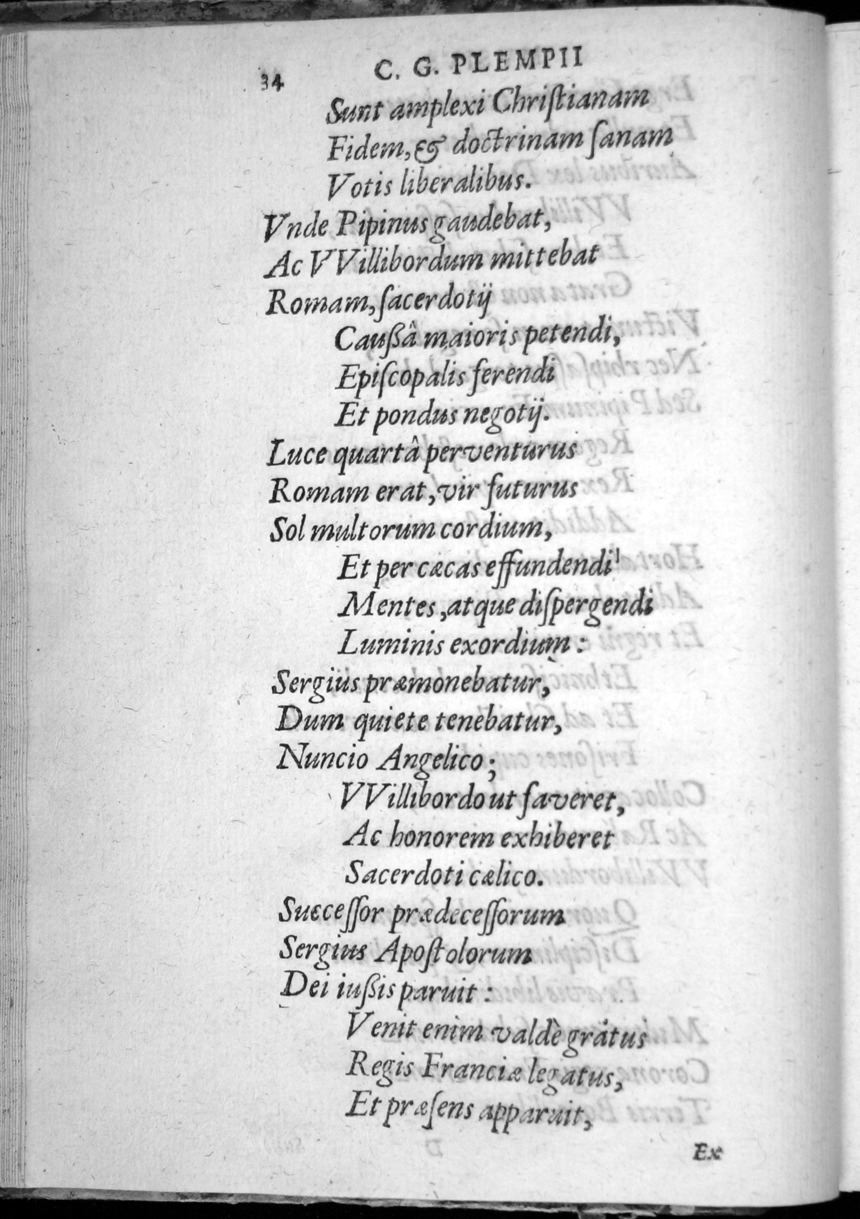 34 C. G. PLEMPII
Sunt amplexi Chriſtianam
Fidem, & doctrinam ſanam
Votis liberalibus.
Vnde Pipinus gaudebat,
Ac VVillibordum mittebat
Romam, ſacerdotij
Cauſſâ maioris petendi,
Epiſcopalis ferendi
Et pondus negotij.
Luce quartâ perventurus
Romam erat, vir futurus
Sol multorum cordium,
Et per cæcas effundendi
Mentes, atque diſpergendi
Luminis exordium:
Sergius præmonebatur,
Dum quiete tenebatur,
Nuncio Angelico;
VVillibordo ut faveret,
Ac honorem exhiberet
Sacerdoti cælico.
Succeſſor prædeceſſorum
Sergius Apoſtolorum
Dei iußis paruit:
Venit enim valdè grātus
Regis Franciæ legatus,
Et præſens apparuit,
Ex